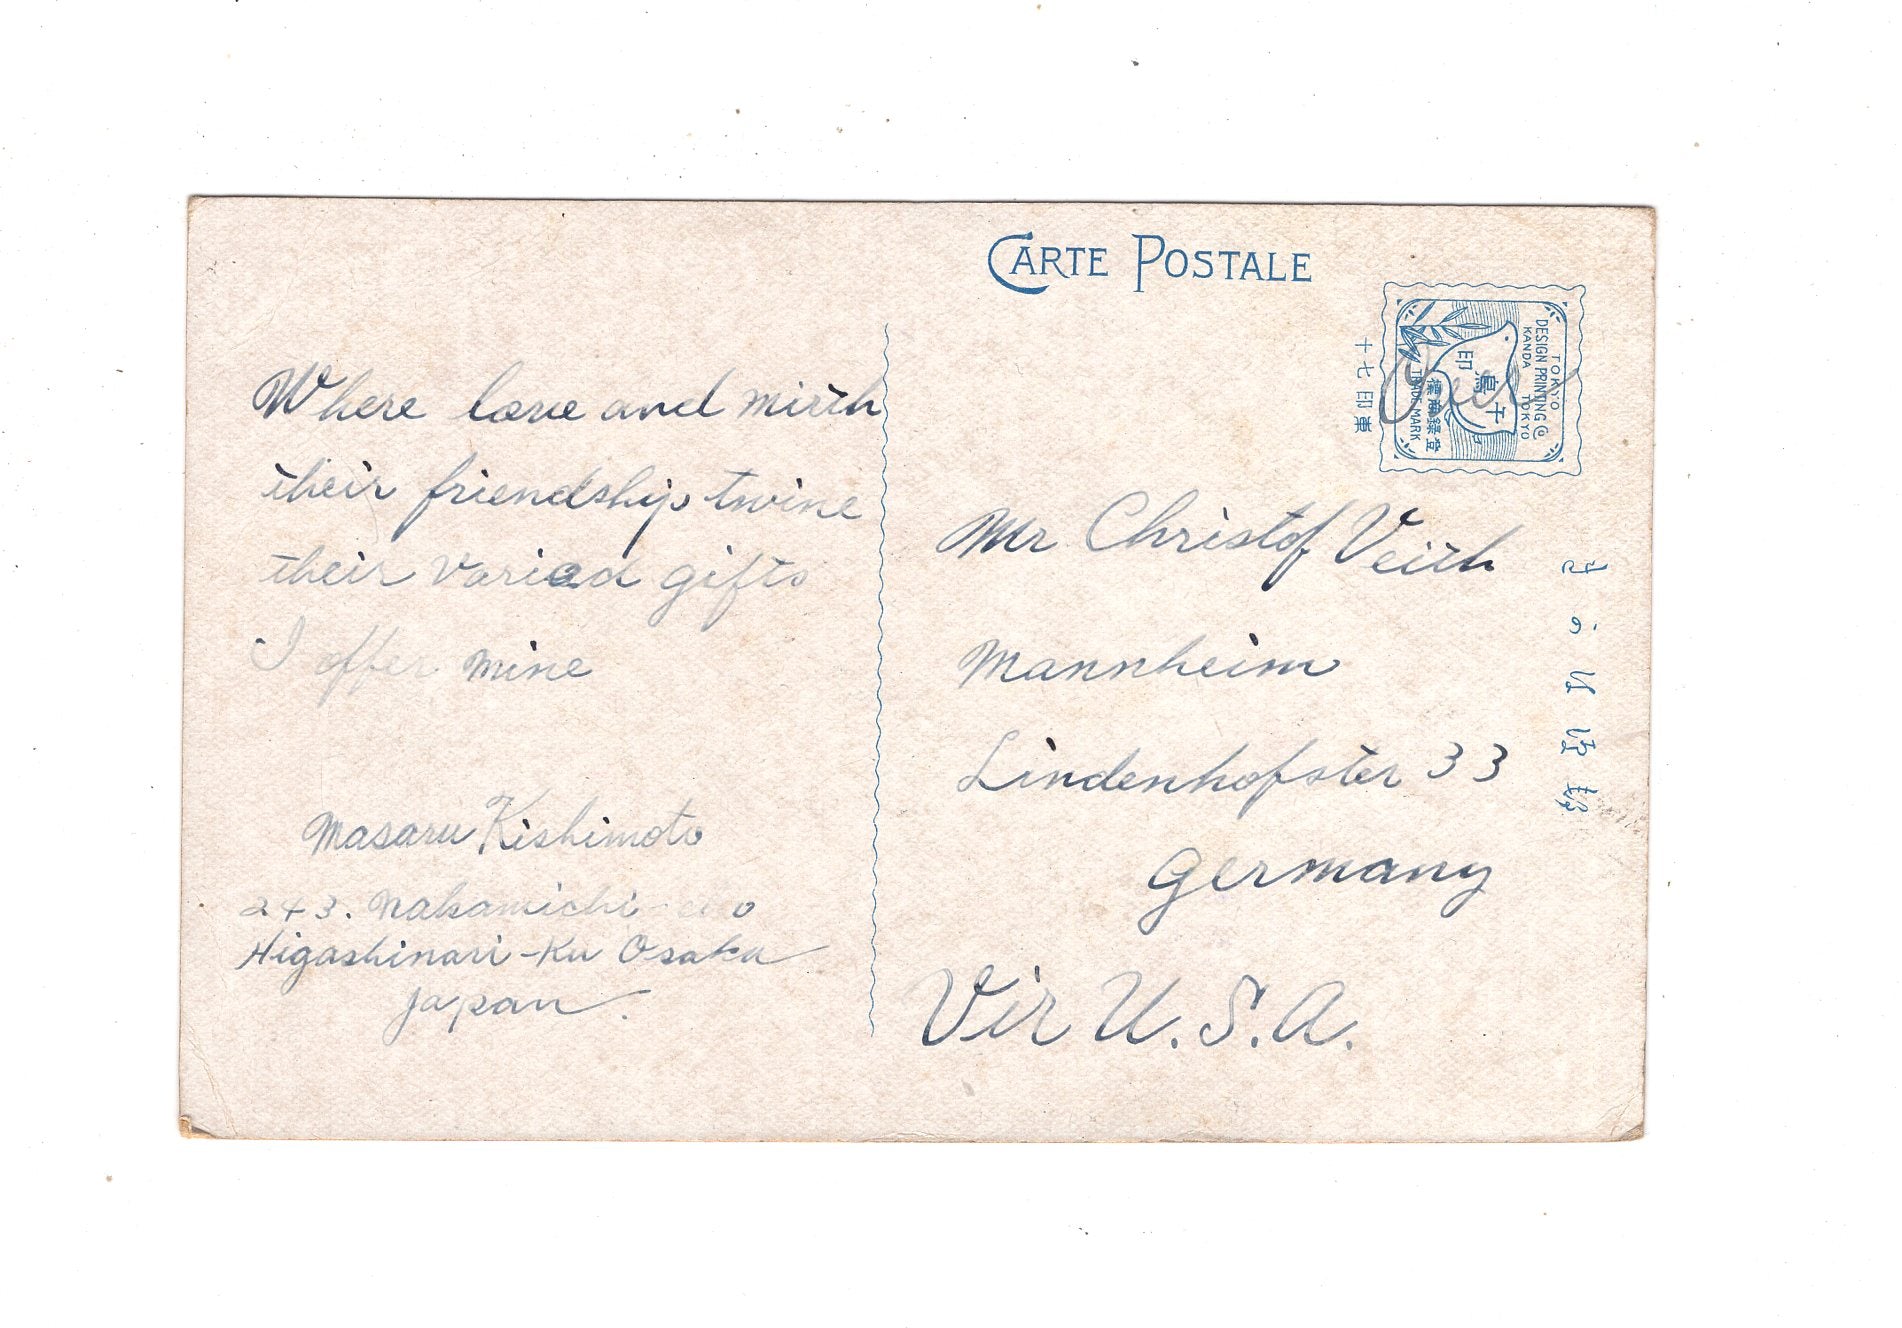 CARTE POSTALE
TOKYO
DESIGN PRINTING Co
KANDA TOKYO
千鳥印
登錄商標
TRADE MARK
東印七十
きかは便郵
Where love and mirth
their friendship twine
their varied gifts
I offer mine
Masaru Kishimoto
243. Nakamichi
Higashinari-Ku Osaka
Japan.
Mr Christof Veith
Mannheim
Lindenhofster 33
Germany
Vir U.S.A.